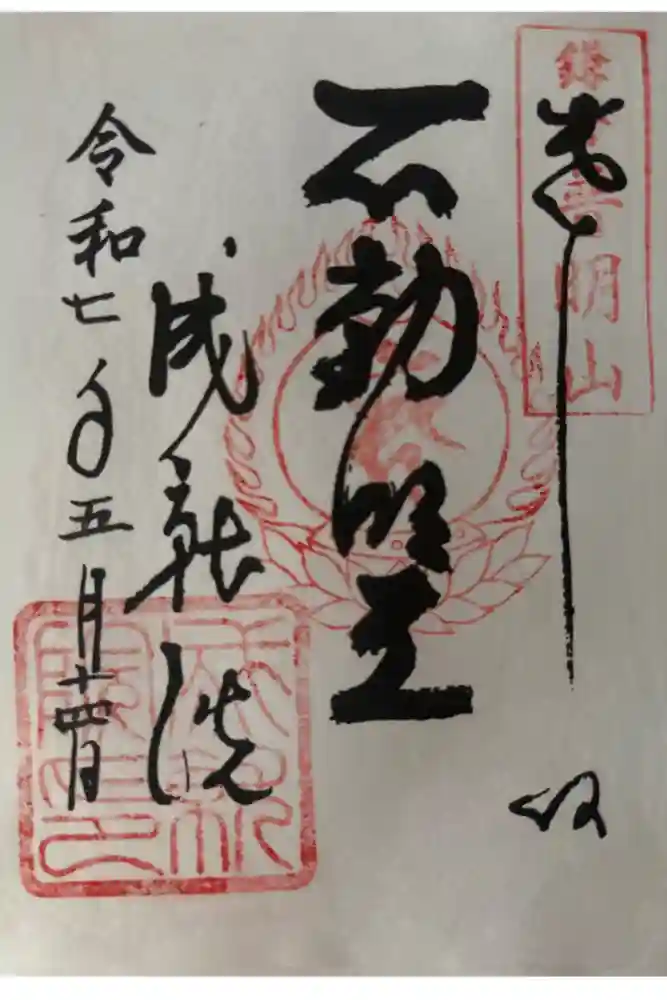 奉拝
鎌倉普明山
不動明王
成就院
令和七年五月十四日